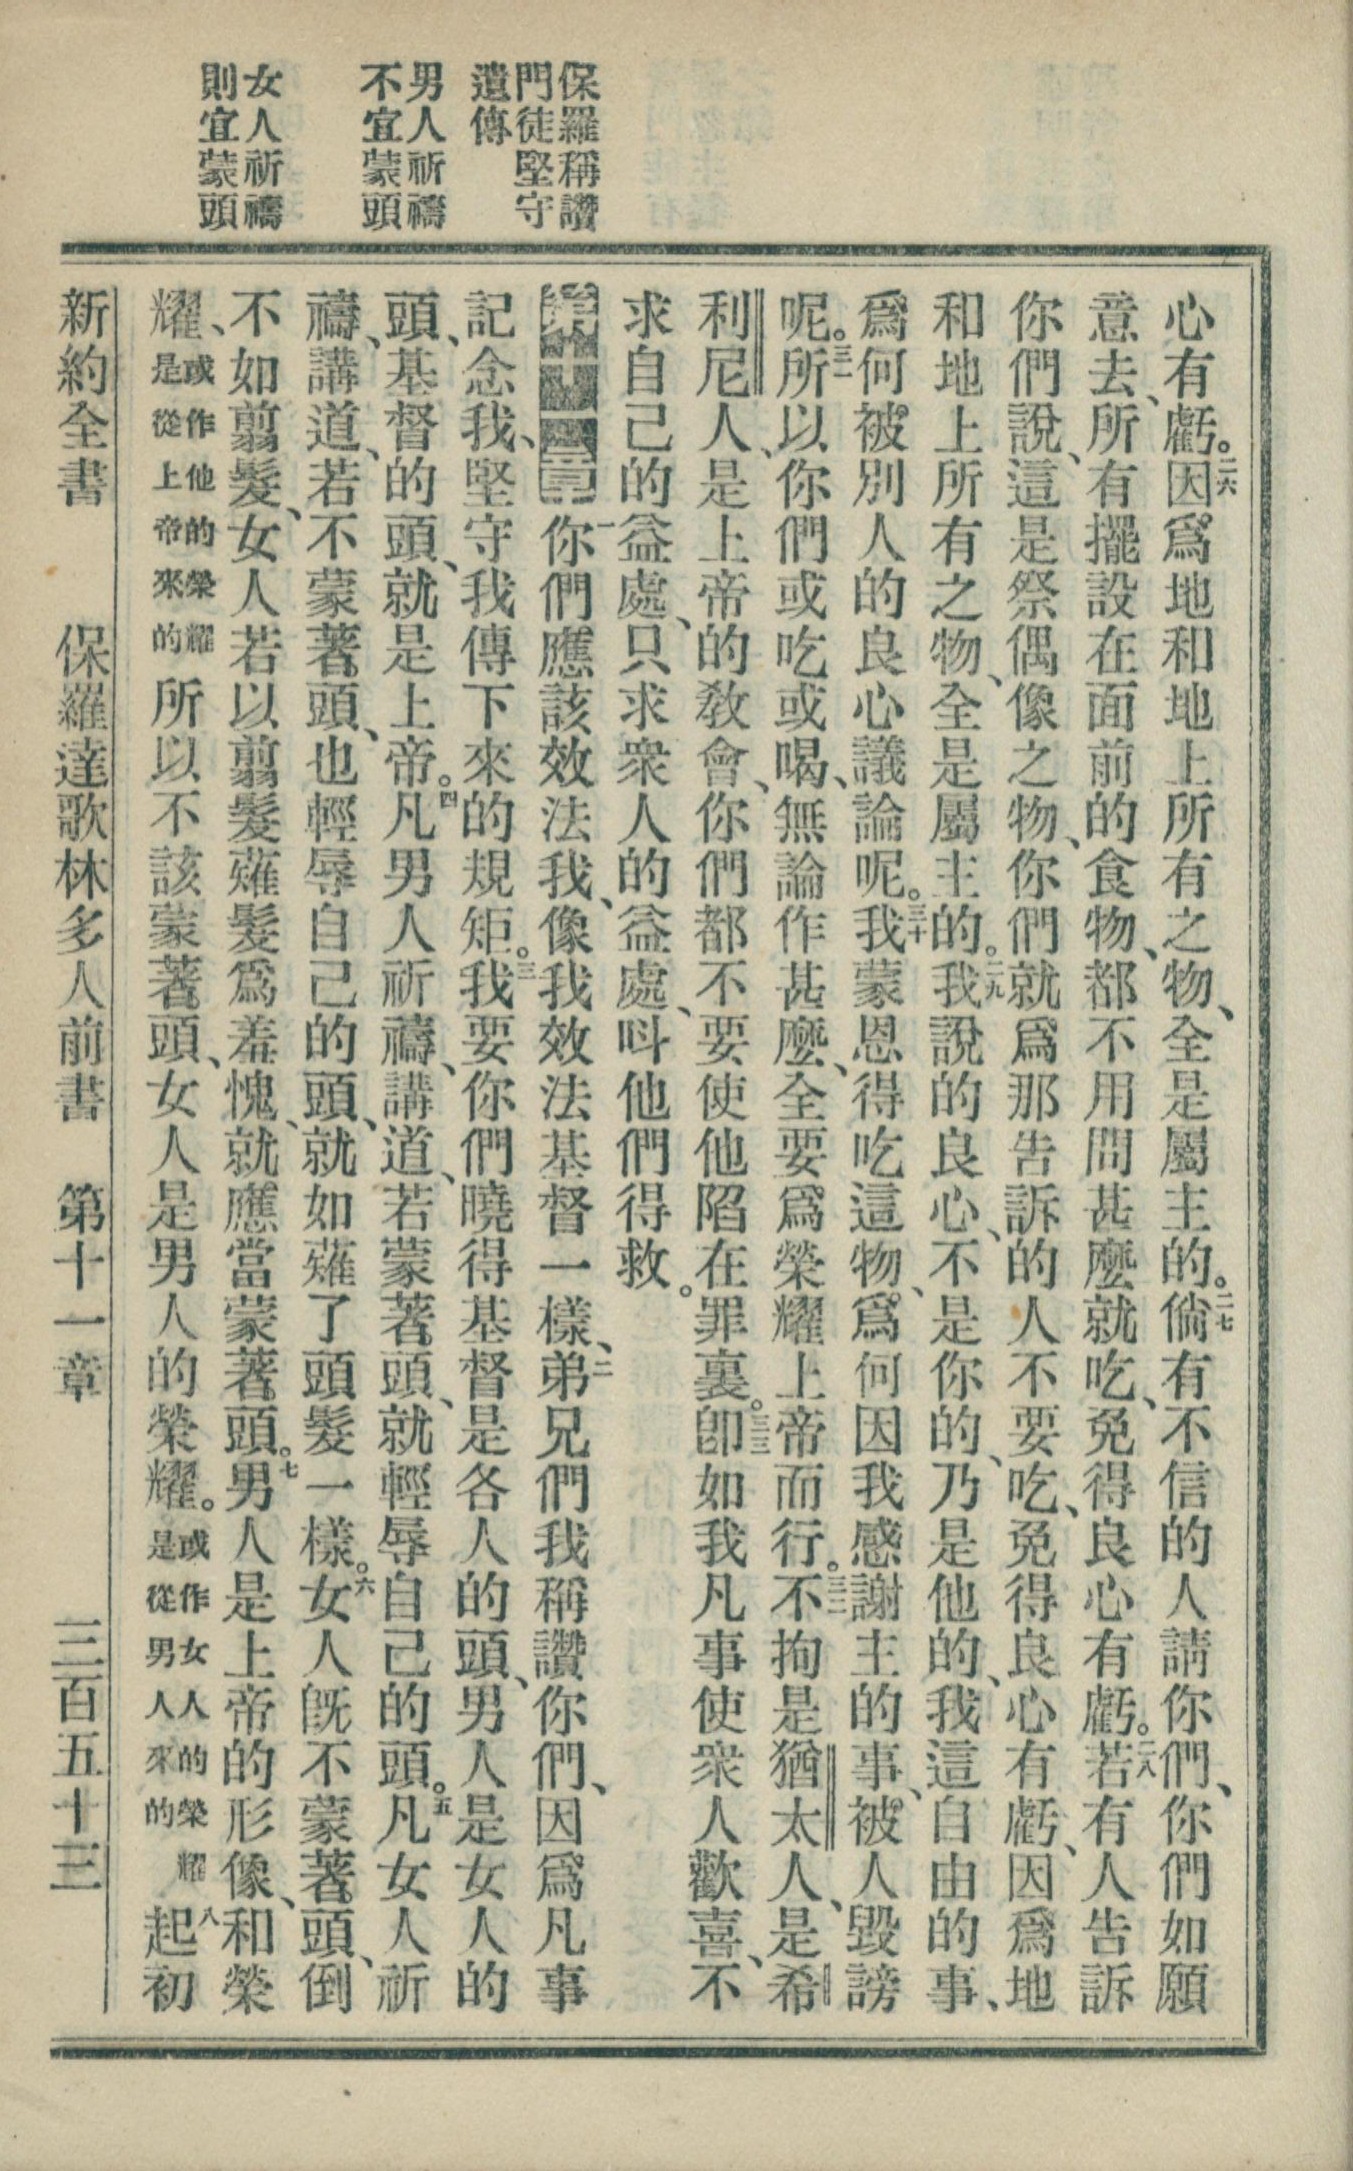 保羅稱讚
門徒堅守
遺傳
男人祈禱
不宜蒙頭
女人祈禱
則宜蒙頭
心有虧。二六因爲地和地上所有之物、全是屬主的。二七倘有不信的人請你們、你們如願
意去、所有擺設在面前的食物、都不用問甚麼就吃、免得良心有虧。二八若有人告訴
你們說、這是祭偶像之物、你們就爲那告訴的人不要吃、免得良心有虧、因爲地
和地上所有之物、全是屬主的。二九我說的良心、不是你的、乃是他的、我這自由的事、
爲何被別人的良心議論呢。三十我蒙恩得吃這物、爲何因我感謝主的事、被人毀謗
呢。三一所以你們或吃或喝、無論作甚麼、全要爲榮耀上帝而行。三二不拘是猶太人、是希
利尼人、是上帝的教會、你們都不要使他陷在罪裏。三三卽如我凡事使衆人歡喜、不
求自己的益處、只求衆人的益處、呌他們得救。
第十一章一你們應該效法我、像我效法基督一樣、二弟兄們我稱讚你們、因爲凡事
記念我、堅守我傳下來的規矩。三我要你們曉得基督是各人的頭、男人是女人的
頭、基督的頭、就是上帝。四凡男人祈禱、講道、若蒙著頭、就輕辱自己的頭。五凡女人祈
禱、講道、若不蒙著頭、也輕辱自己的頭、就如薙了頭髮一樣。六女人旣不蒙著頭、倒
不如翦髮、女人若以翦髮薙髮爲羞愧、就應當蒙著頭。七男人是上帝的形像、和榮
耀、或作他的榮耀是從上帝來的所以不該蒙著頭、女人是男人的榮耀。或作女人的榮耀是從男人來的八起初
新約全書 保羅達歌林多人前書 第十一章 三百五十三